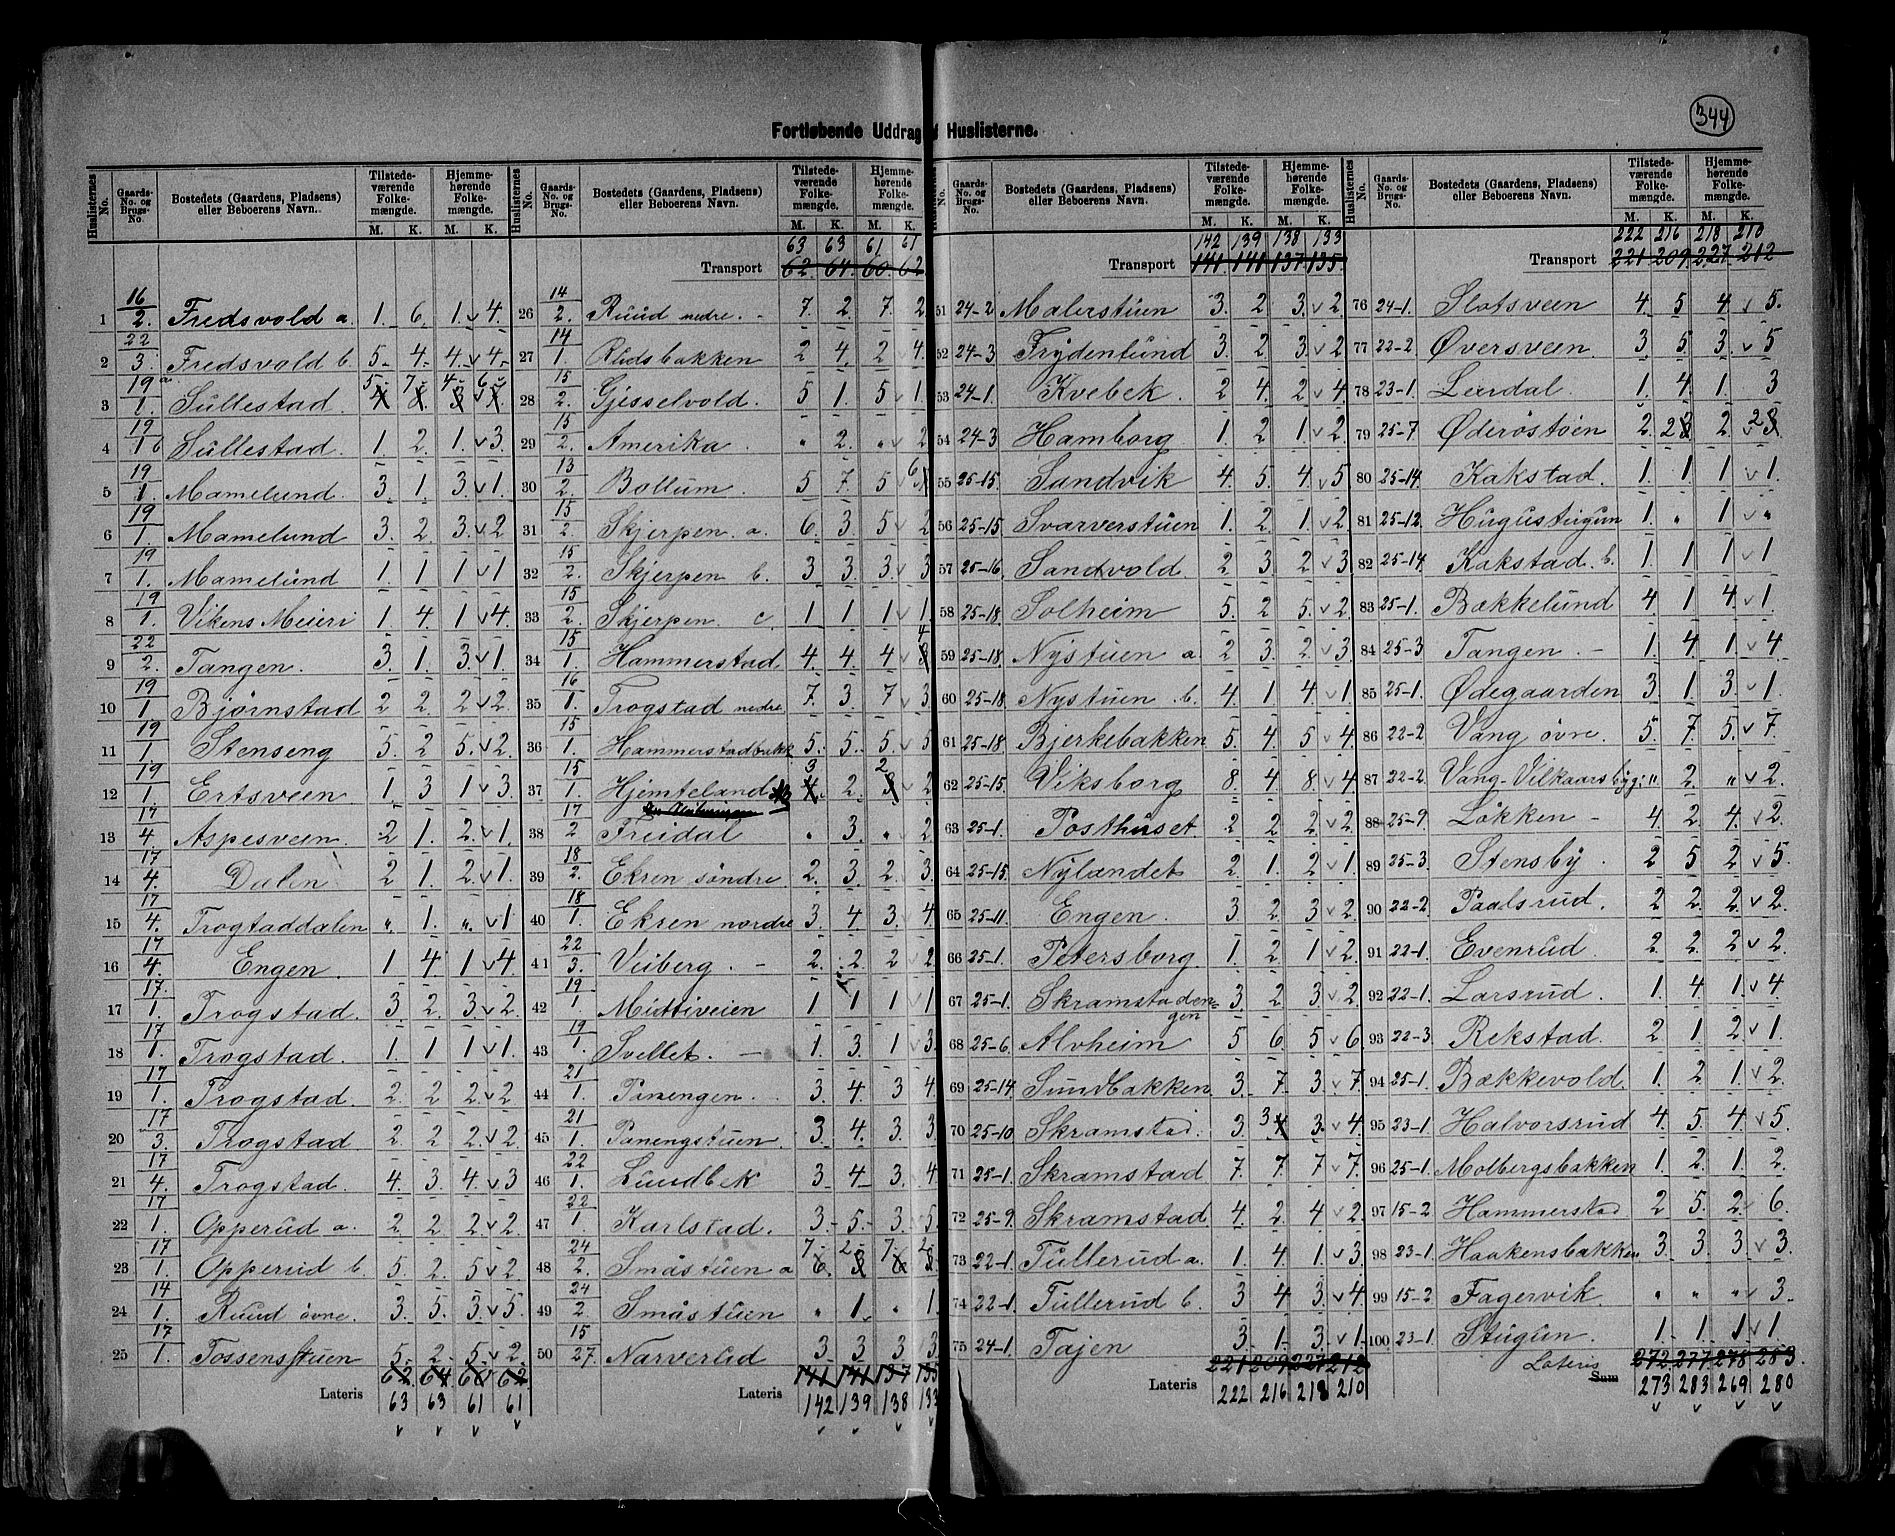 344
Fortløbende Uddrag af Huslisterne.
Huslisternes No. | Gaards-No. og Brugs-No. | Bostedets (Gaardens, Pladsens) eller Beboerens Navn. | Tilstedeværende Folkemængde. M. K. | Hjemmehørende Folkemængde. M. K.
1 16/2. Fredsvold a. 1. 6. 1. 4.
2 22/3. Fredsvold b. 5. 4. 4. 4.
3 19a/1. Sullestad. 5. 7. 4. 6.
4 19/1b Sullestad. 1. 2. 1. 3.
5 19/1. Mamelund. 3. 1. 3. 1.
6 19/1. Mamelund 3. 2. 3. 2
7 19/1. Mamelund 1. 1 1 1
8 19/1. Vikens Meieri 1 4. 1 4.
9 22/2. Tangen. 3. 1. 3. 1.
10 19/1 Bjørnstad 2 2. 2. 2.
11 19/1 Stenseng 5. 2 5. 2.
12 19/1. Ertsveen 1. 3 1 3.
13 17/4 Aspesveen. 2 1. 2. 1.
14 17/4. Dalen 2 1. 2. 1.
15 17/4. Trogstaddalen " 1. " 1
16 17/4. Engen. 1 4. 1 4.
17 17/1. Trogstad. 3 2. 3. 2.
18 17/1. Trogstad. 1. 1 1 1.
19 17/1. Trogstad. 2. 2 2. 2
20 17/3. Trogstad 2. 2 2. 2.
21 17/4. Trogstad. 4. 3. 4. 3
22 17/1. Opperud a. 2 2. 2. 2.
23 17/1. Opperud b. 5. 2. 5 2.
24 14/1. Ruud øvre. 3. 5. 3. 5.
25 17/1. Tossensstuen 5. 2. 5. 2.
62. 64. 60. 62.
Lateris 63 63 61 61
63 63 61 61
Transport 62 64. 60 62
26 14/2. Ruud nedre. 7. 2. 7. 2
27 14/1. Rudsbakken 2 4. 2 4.
28 15/2. Gjisselvold. 5 1. 5 1.
29 15/2. Amerika. " 2. " 2
30 13/2. Bollum. 5 7. 5 6
31 15/2. Skjerpen. a. 6. 3 5 2
32 15/2. Skjerpen b. 3 3. 3. 3
33 15/2. Skjerpen. c. 1 1 1 1.
34 15/1. Hammerstad 4. 4. 4 4
35 16/1. Trogstad nedre 7. 3. 7 3
36 15/1. Hammerstadbakk 5. 5. 5. 5
37 15/1. Hjemteland 3 2. 2 2
38 17/2 Freidal " 3. " 2
39 18/2. Ekren søndre 2. 3. 2. 3
40 18/1. Ekren nordre 3. 4. 3. 4
41 22/3. Veiberg. 2. 2 2 2
42 19/1. Midtiveien 1 1 1 1
43 19/1. Svellet. 1. 3. 1 3
44 21/1. Panengen. 3. 4. 3 4
45 21/1. Panengstuen 3. 4. 3. 3
46 22/1. Lundbek 3. 4 3. 4
47 22/1. Karlstad. 3. 5. 3. 5
48 24/2. Småstuen a 7. 2. 7. 2
49 24/2. Småstuen " 1. " 1.
50 15/27. Narverud 3 3 3 3
141 141 137 135
Lateris 142 139 138 133
142 139 138 133
Transport 141 141 137 135.
51 24-2 Malerstuen 3. 2 3. 2
52 24-3 Frydenlund 3. 2 3. 2
53 24-1. Kvebek. 2 4. 2 4.
54 24-3 Hamborg 1. 2 1. 2.
55 25-15. Sandvik 4. 5 4. 5
56 25-15. Svarverstuen 1. 2 1. 2
57 25-16. Sandvold. 2 3 2 3
58 25-18. Solheim 5. 2 5. 2
59 25-18. Nystuen a. 2 3. 2 3
60 25-18 Nystuen. b. 4. 1 4 1
61 25-18 Bjerkebakken 5. 4. 5 4.
62 25-15. Viksborg 8. 4 8. 4
63 25-1. Posthuset 2 2. 2. 2
64 25-15. Nylandet 2. 1. 2 1.
65 25-11. Engen. 3. 2. 3 2.
66 25-1. Petersborg. 1. 2. 1 2.
67 25-1. Skramstaden-gen 3. 2 3 2.
68 25-6. Alvheim 5 6 5 6
69 25-14. Sundbakken 3. 7. 3. 7
70 25-10 Skramstad. 3. 3 3. 4.
71 25-1. Skramstad 7. 7 7 7
72 25-9. Skramstad 4. 2 4 2
73 22-1. Tullerud a. 1. 4 1. 3
74 22-1. Tullerud b. 3 4 3. 4.
75 24-1. Tajen 3. 1. 3. 1.
221 209. 227 212
Lateris 222 216 218 210
222 216 218 210
Transport 221 209. 227. 212
76 24-1. Slotsveen 4. 5 4. 5.
77 22-2 Øversveen. 3. 5 3. 5
78 23-1. Leirdal. 1. 4. 1. 3
79 25-7. Øderöstöen 2. 2 2. 2
80 25-14. Kakstad. 1. 1 1 1.
81 25-12. Hugustugun 1. " 1 "
82 25-14. Kakstad. b. 1. 1 1 1
83 25-1. Bækkelund 4. 1 4. 1.
84 25-3 Tangen. 1. 4 1. 4
85 25-1. Ødegaarden 3. 1. 3. 1.
86 22-2 Vang øvre. 5. 7. 5. 7.
87 22-2. Vang-Vilkaarsbyg: " 2. " 2.
88 25-9. Løkken 4. 2. 4. 2.
89 25-3. Stensby. 2 5 2 5.
90 22-2. Paalsrud. 2. 2. 2. 2.
91 22-1. Evenrud 2. 2. 2. 2.
92 22-1. Larsrud. 1. 4 1. 4.
93 22-3. Rekstad. 2 1 2 1.
94 25-1. Bækkevold. 1. 2 1. 2.
95 23-1. Halvorsrud 4. 5 4. 5
96 25-1. Molbergsbakken 1. 2. 1. 2.
97 15-2. Hammerstad 2 5. 2 6.
98 23-1. Haakensbakken 3. 3. 3 3.
99 15-2. Fagervik. " " " 3.
100 23-1. Stugun. 1. 1. 1 1.
Lateris Sum 272. 277. 278. 283.
273 283 269 280